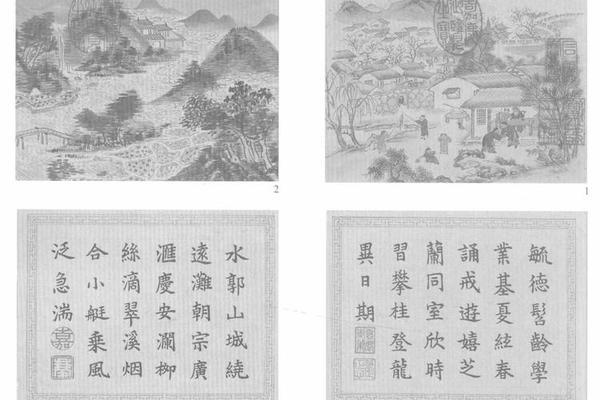 1
毓德髫齡學
業基夏絃春
誦戒遊嬉芝
蘭同室欣時
習攀桂登龍
異日期
2
水郭山城繞
遠灘朝宗廣
滙慶安瀾柳
絲滴翠溪烟
合小艇乘風
泛急湍
嘉